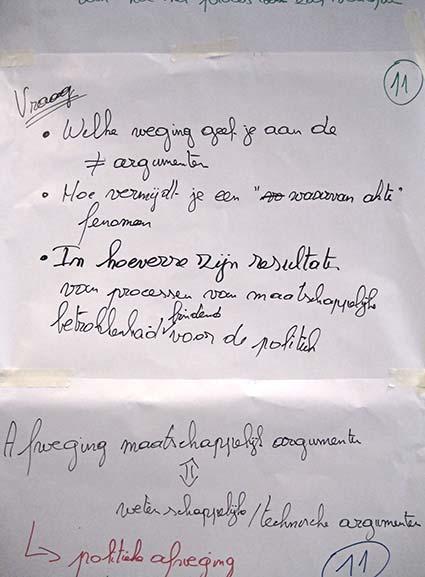 11
Vraag
• Welke weging geef je aan de
≠ argumenten
• Hoe vermijdt je een "waarvan akte"
fenomeen
• In hoeverre zijn resultaten
van processen van maatschappelijke
betrokkenheid bindend voor de politiek
Afweging maatschappelijk argumenten
⇕
wetenschappelijk/technische argumenten
↳ politieke afweging
11